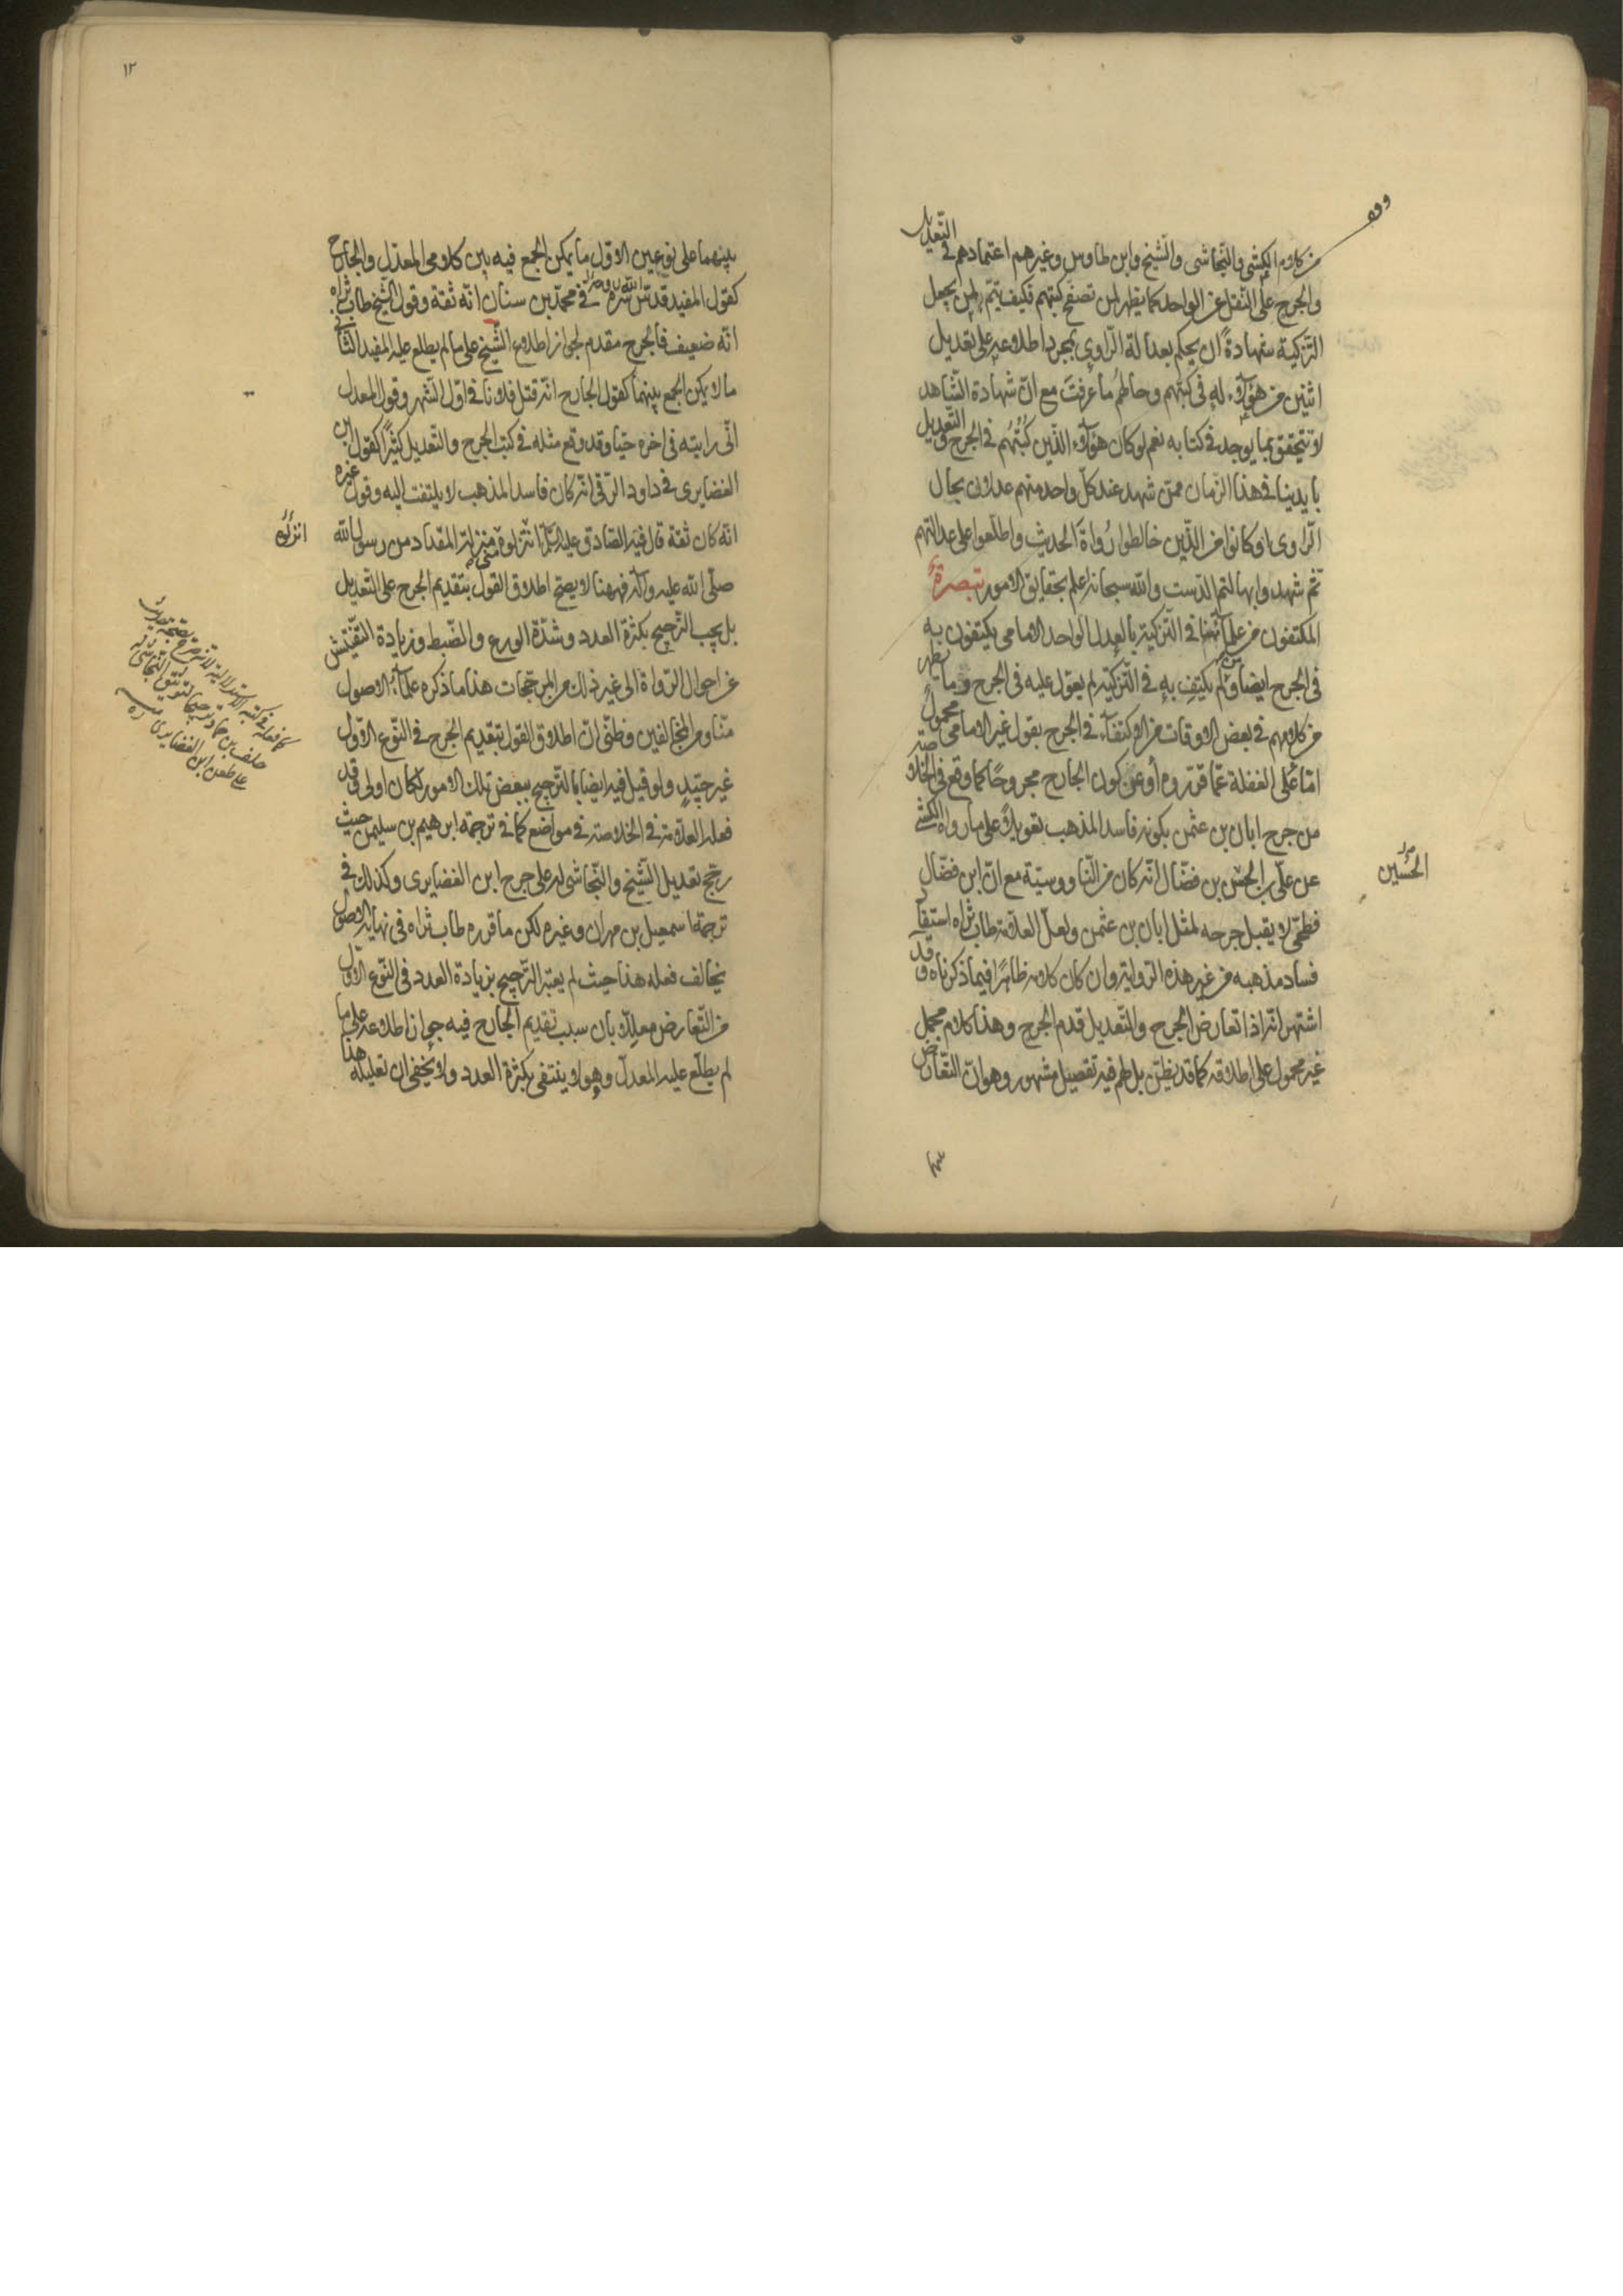 وقف
من كلام الكشي والنجاشي والشيخ وابن طاوس وغيرهم اعتمادهم في التعديل
والجرح على النقل عن الواحد كما يظهر لمن تصفح كتبهم فكيف يتم لمن يجعل
التزكية شهادةً ان يحكم بعدالة الراوي بمجرد اطلاعه على تعديل
اثنين من هؤلاء له في كتبهم وحالهم ما عرفت مع ان شهادة الشاهد
لا تتحقق بما يوجد في كتابه نعم لو كان هؤلاء الذين كتبهم في الجرح والتعديل
بايدينا في هذا الزمان ممن شهد عند كل واحد منهم عدلان بحال
الراوي او كانوا من الذين خالطوا رواة الحديث واطلعوا على عدالتهم
ثم شهدوا بها لتم الدست والله سبحانه اعلم بحقايق الامور تبصرة
المكتفون من علمائنا في التزكية بالعدل الواحد الامامي يكتفون به
في الجرح ايضا ومن لم يكتف به في التزكية لم يعول عليه في الجرح وما يظهر
من كلامهم في بعض الاوقات من الاكتفاء في الجرح بقول غير الامامي محمول
اما على الغفلة عما قرروه أو عن كون الجارح مجروحًا كما وقع في الخلاصة
من جرح ابان بن عثمن بكونه فاسد المذهب تعويلاً على ما رواه الكشي
عن علي بن الحسن بن فضال انه كان من الناووسية مع ان ابن فضال
الحسين
فطحي لا يقبل جرحه لمثل ابان بن عثمن ولعل العلامة طاب ثراه استفاد
فساد مذهبه من غير هذه الرواية وان كان كلامه ظاهرًا فيما ذكرناه وقد
اشتهر انه اذا تعارض الجرح والتعديل قدم الجرح وهذا كلام مجمل
غير محمول على اطلاقه كما قد يظن بل لهم فيه تفصيل مشهور وهو ان التعارض
١٢
بينهما على نوعين الاول ما يمكن الجمع فيه بين كلامي المعدل والجارح
كقول المفيد قدس الله سره في محمد بن سنان انه ثقة وقول الشيخ طاب ثراه
انه ضعيف فالجرح مقدم لجواز اطلاع الشيخ على ما لم يطلع عليه المفيد الثاني
ما لا يمكن الجمع بينهما كقول الجارح انه قتل فلانا في اول الشهر وقول المعدل
اني رايته في اخره حيا وقد وقع مثله في كتب الجرح والتعديل كثيرًا كقول ابن
الغضايري في داود الرقي انه كان فاسد المذهب لا يلتفت اليه وقول غيره
انه كان ثقة قال فيه الصادق عليه السلام انزلوه مني منزلة المقداد من رسول الله
انزلوه
صلى الله عليه واله فههنا لا يصح اطلاق القول بتقديم الجرح على التعديل
بل يجب الترجيح بكثرة العدد وشدة الورع والضبط وزيادة التفتيش
عن احوال الرواة الى غير ذلك من المرجحات هذا ما ذكره علماء الاصول
منا ومن المخالفين وظني ان اطلاق القول بتقديم الجرح في النوع الاول
غير جيّدٍ ولو قيل فيه ايضا بالترجيح ببعض تلك الامور لكان اولى وقد
فعله العلامة في الخلاصة في مواضع كما في ترجمة ابرهيم بن سليمن حيث
رجح تعديل الشيخ والنجاشي له على جرح ابن الغضايري وكذلك في
ترجمة اسمعيل بن مهران وغيره لكن ما قرره طاب ثراه في نهاية الاصول
يخالف فعله هذا حيث لم يعتبر الترجيح بزيادة العدد في النوع الاول
من التعارض معللا بان سبب تقديم الجارح فيه جواز اطلاعه على ما
لم يطلع عليه المعدل وهو لا ينتفي بكثرة العدد ولا يخفى ان تعليله هذا
كما فعله في كتبه الاستدلالية لانه صرح بصحة حديث
خلف بن حماد ترجيحا لتوثيق النجاشي له
على طعن ابن الغضايري